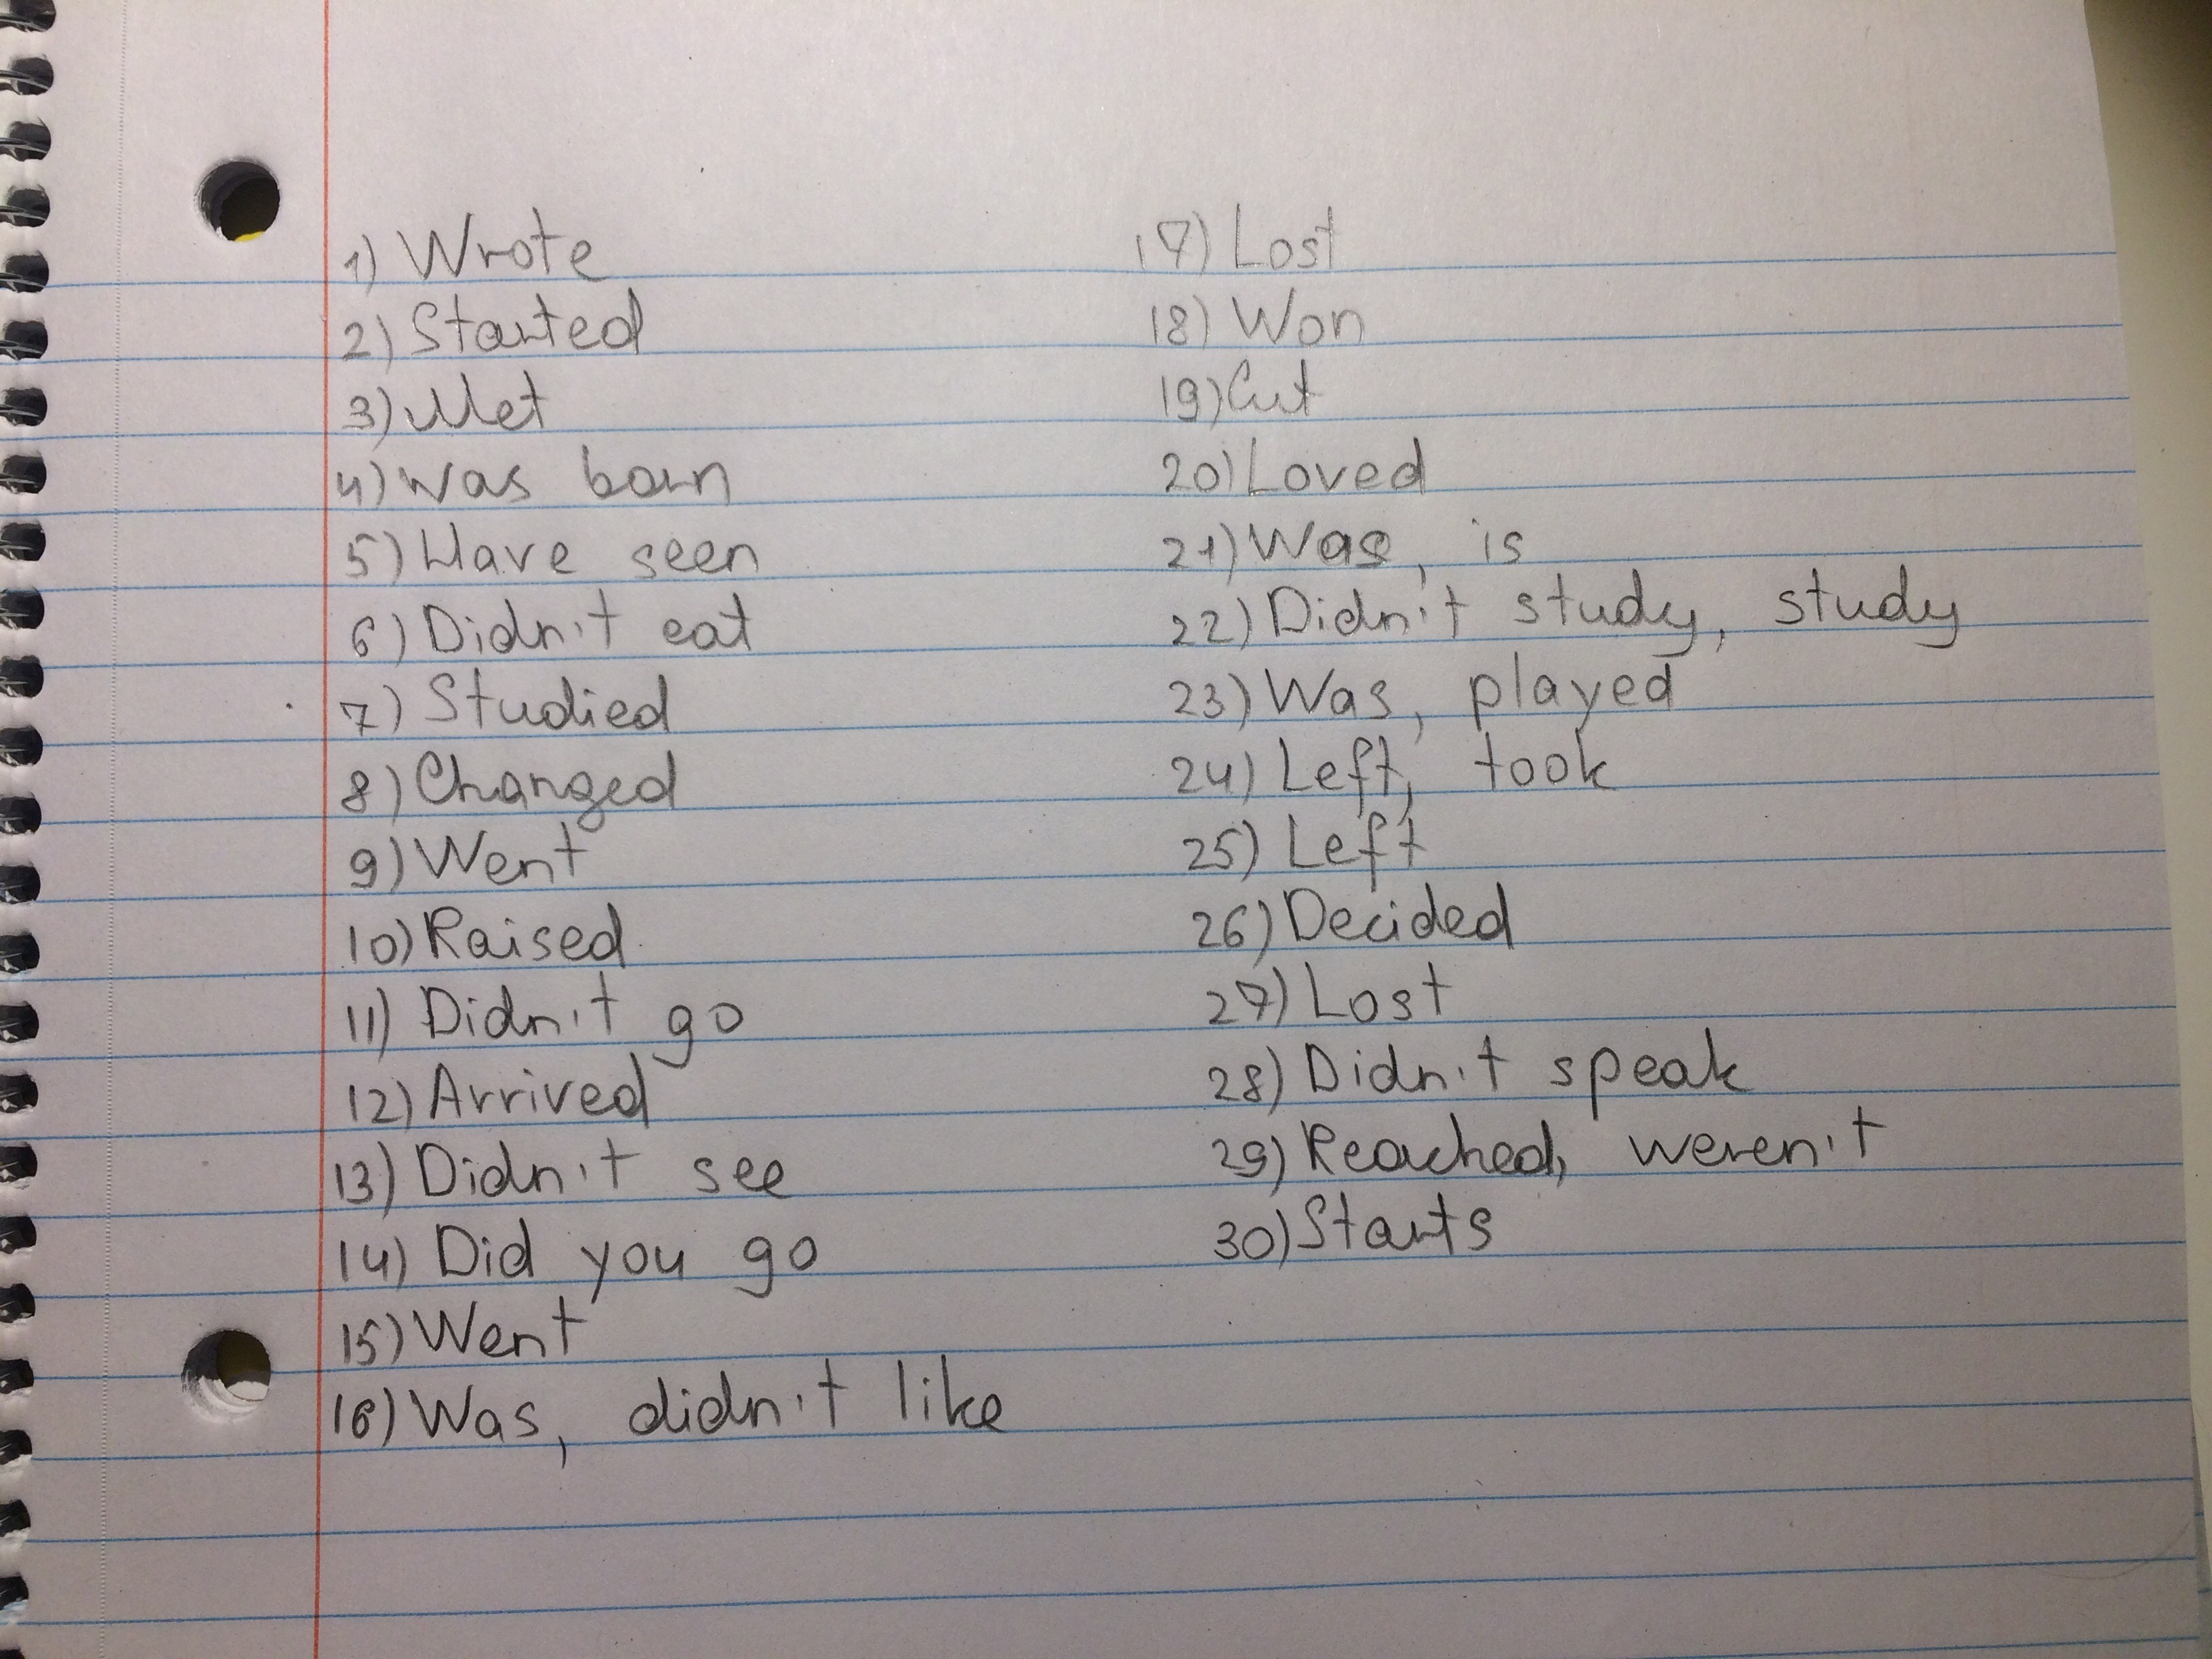 1) Wrote
2) Started
3) Met
4) Was born
5) Have seen
6) Didn't eat
7) Studied
8) Changed
9) Went
10) Raised
11) Didn't go
12) Arrived
13) Didn't see
14) Did you go
15) Went
16) Was, didn't like
17) Lost
18) Won
19) Cut
20) Loved
21) Was, is
22) Didn't study, study
23) Was, played
24) Left, took
25) Left
26) Decided
27) Lost
28) Didn't speak
29) Reached, weren't
30) Starts